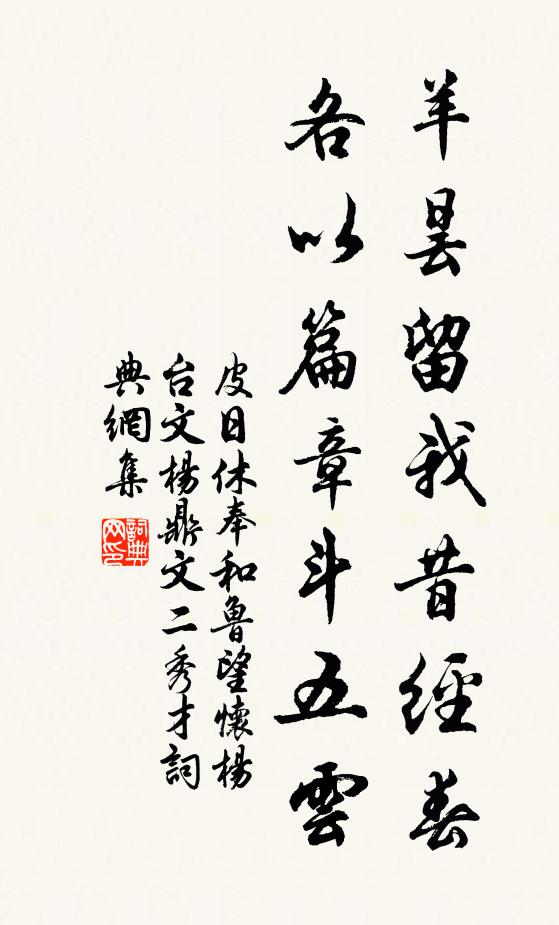 羊曇留我昔經春
各以篇章斗五雲
皮日休奉和魯望懷楊
台文楊鼎文二秀才詞
典網集
詞典网印